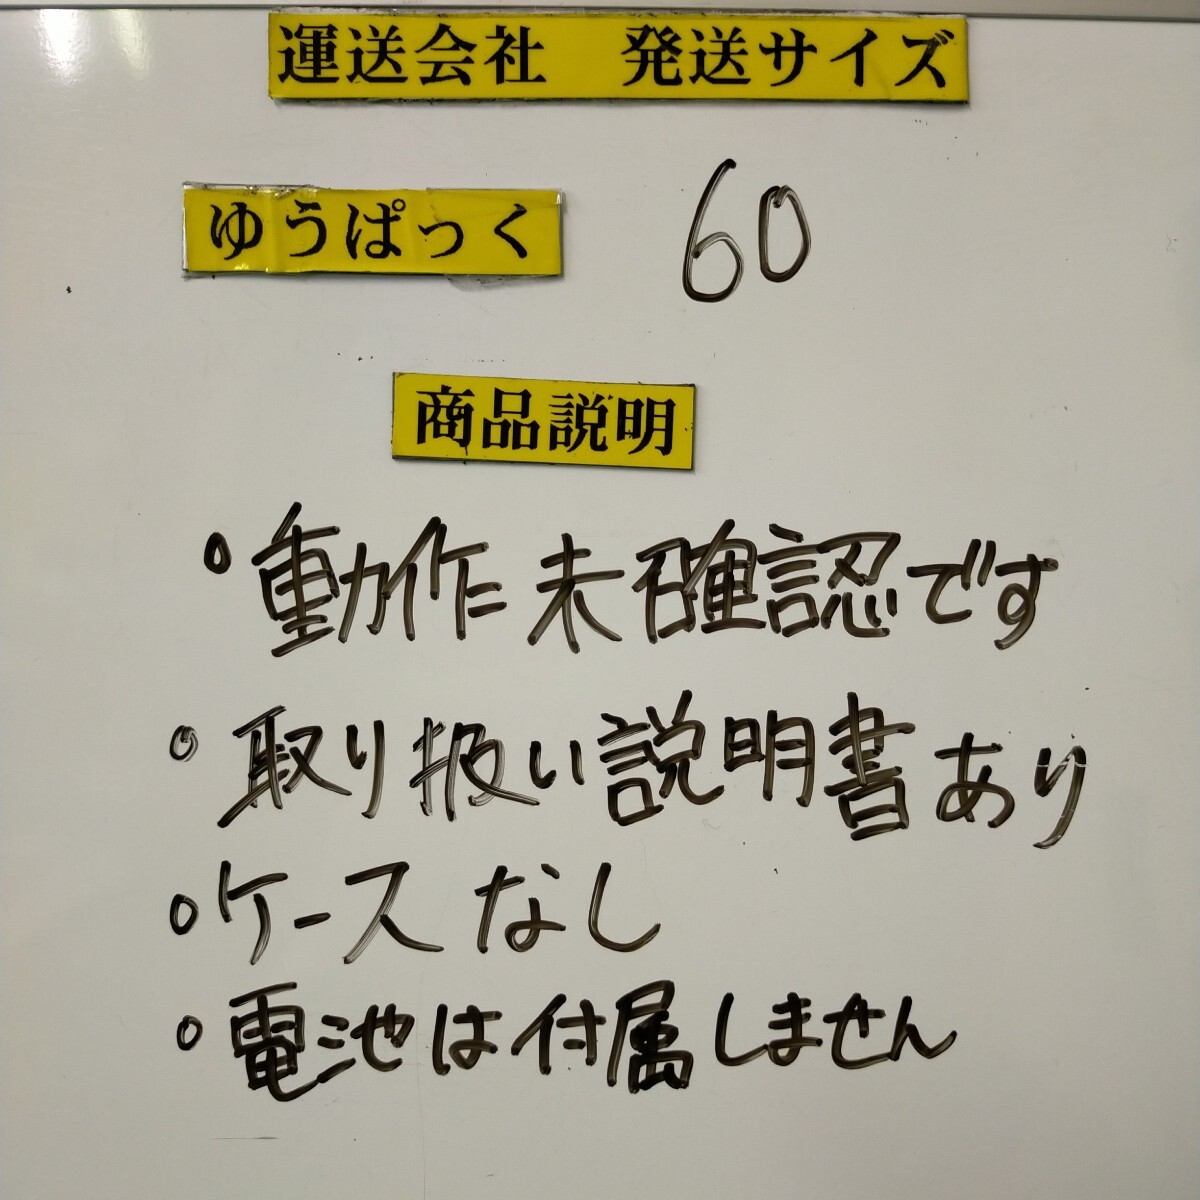 運送会社　発送サイズ
ゆうぱっく　60
商品説明
○動作未確認です
○取り扱い説明書あり
○ケースなし
○電池は付属しません